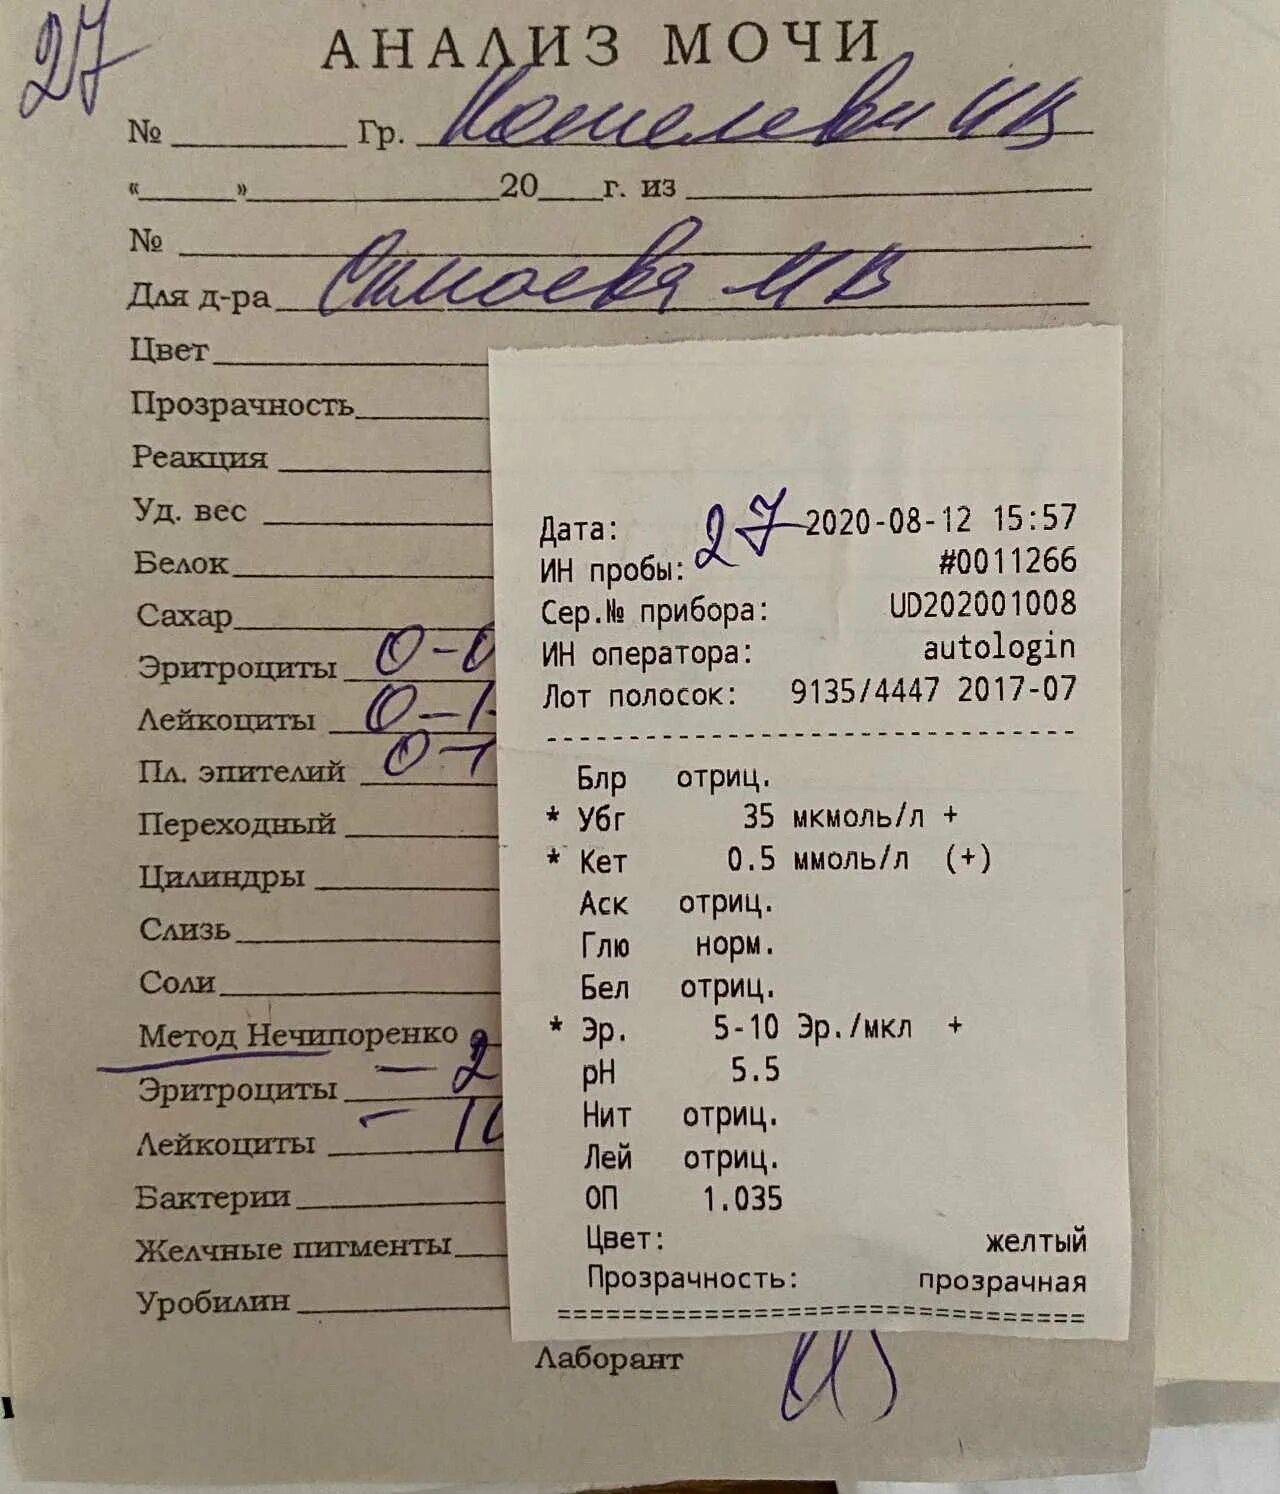 27
АНАЛИЗ МОЧИ
№ Гр. Кошелева И В
« » 20 г. из
№
Для д-ра М В
Цвет
Прозрачность
Реакция
Уд. вес
Белок
Сахар
Эритроциты 0-0
Лейкоциты 0-1
Пл. эпителий 0-1
Переходный
Цилиндры
Слизь
Соли
Метод Нечипоренко
Эритроциты - 2
Лейкоциты -
Бактерии
Желчные пигменты
Уробилин
Лаборант
Дата: 27 2020-08-12 15:57
ИН пробы: #0011266
Сер.№ прибора: UD202001008
ИН оператора: autologin
Лот полосок: 9135/4447 2017-07
--------------------------------
Блр отриц.
* Убг 35 мкмоль/л +
* Кет 0.5 ммоль/л (+)
Аск отриц.
Глю норм.
Бел отриц.
* Эр. 5-10 Эр./мкл +
pH 5.5
Нит отриц.
Лей отриц.
ОП 1.035
Цвет: желтый
Прозрачность: прозрачная
================================